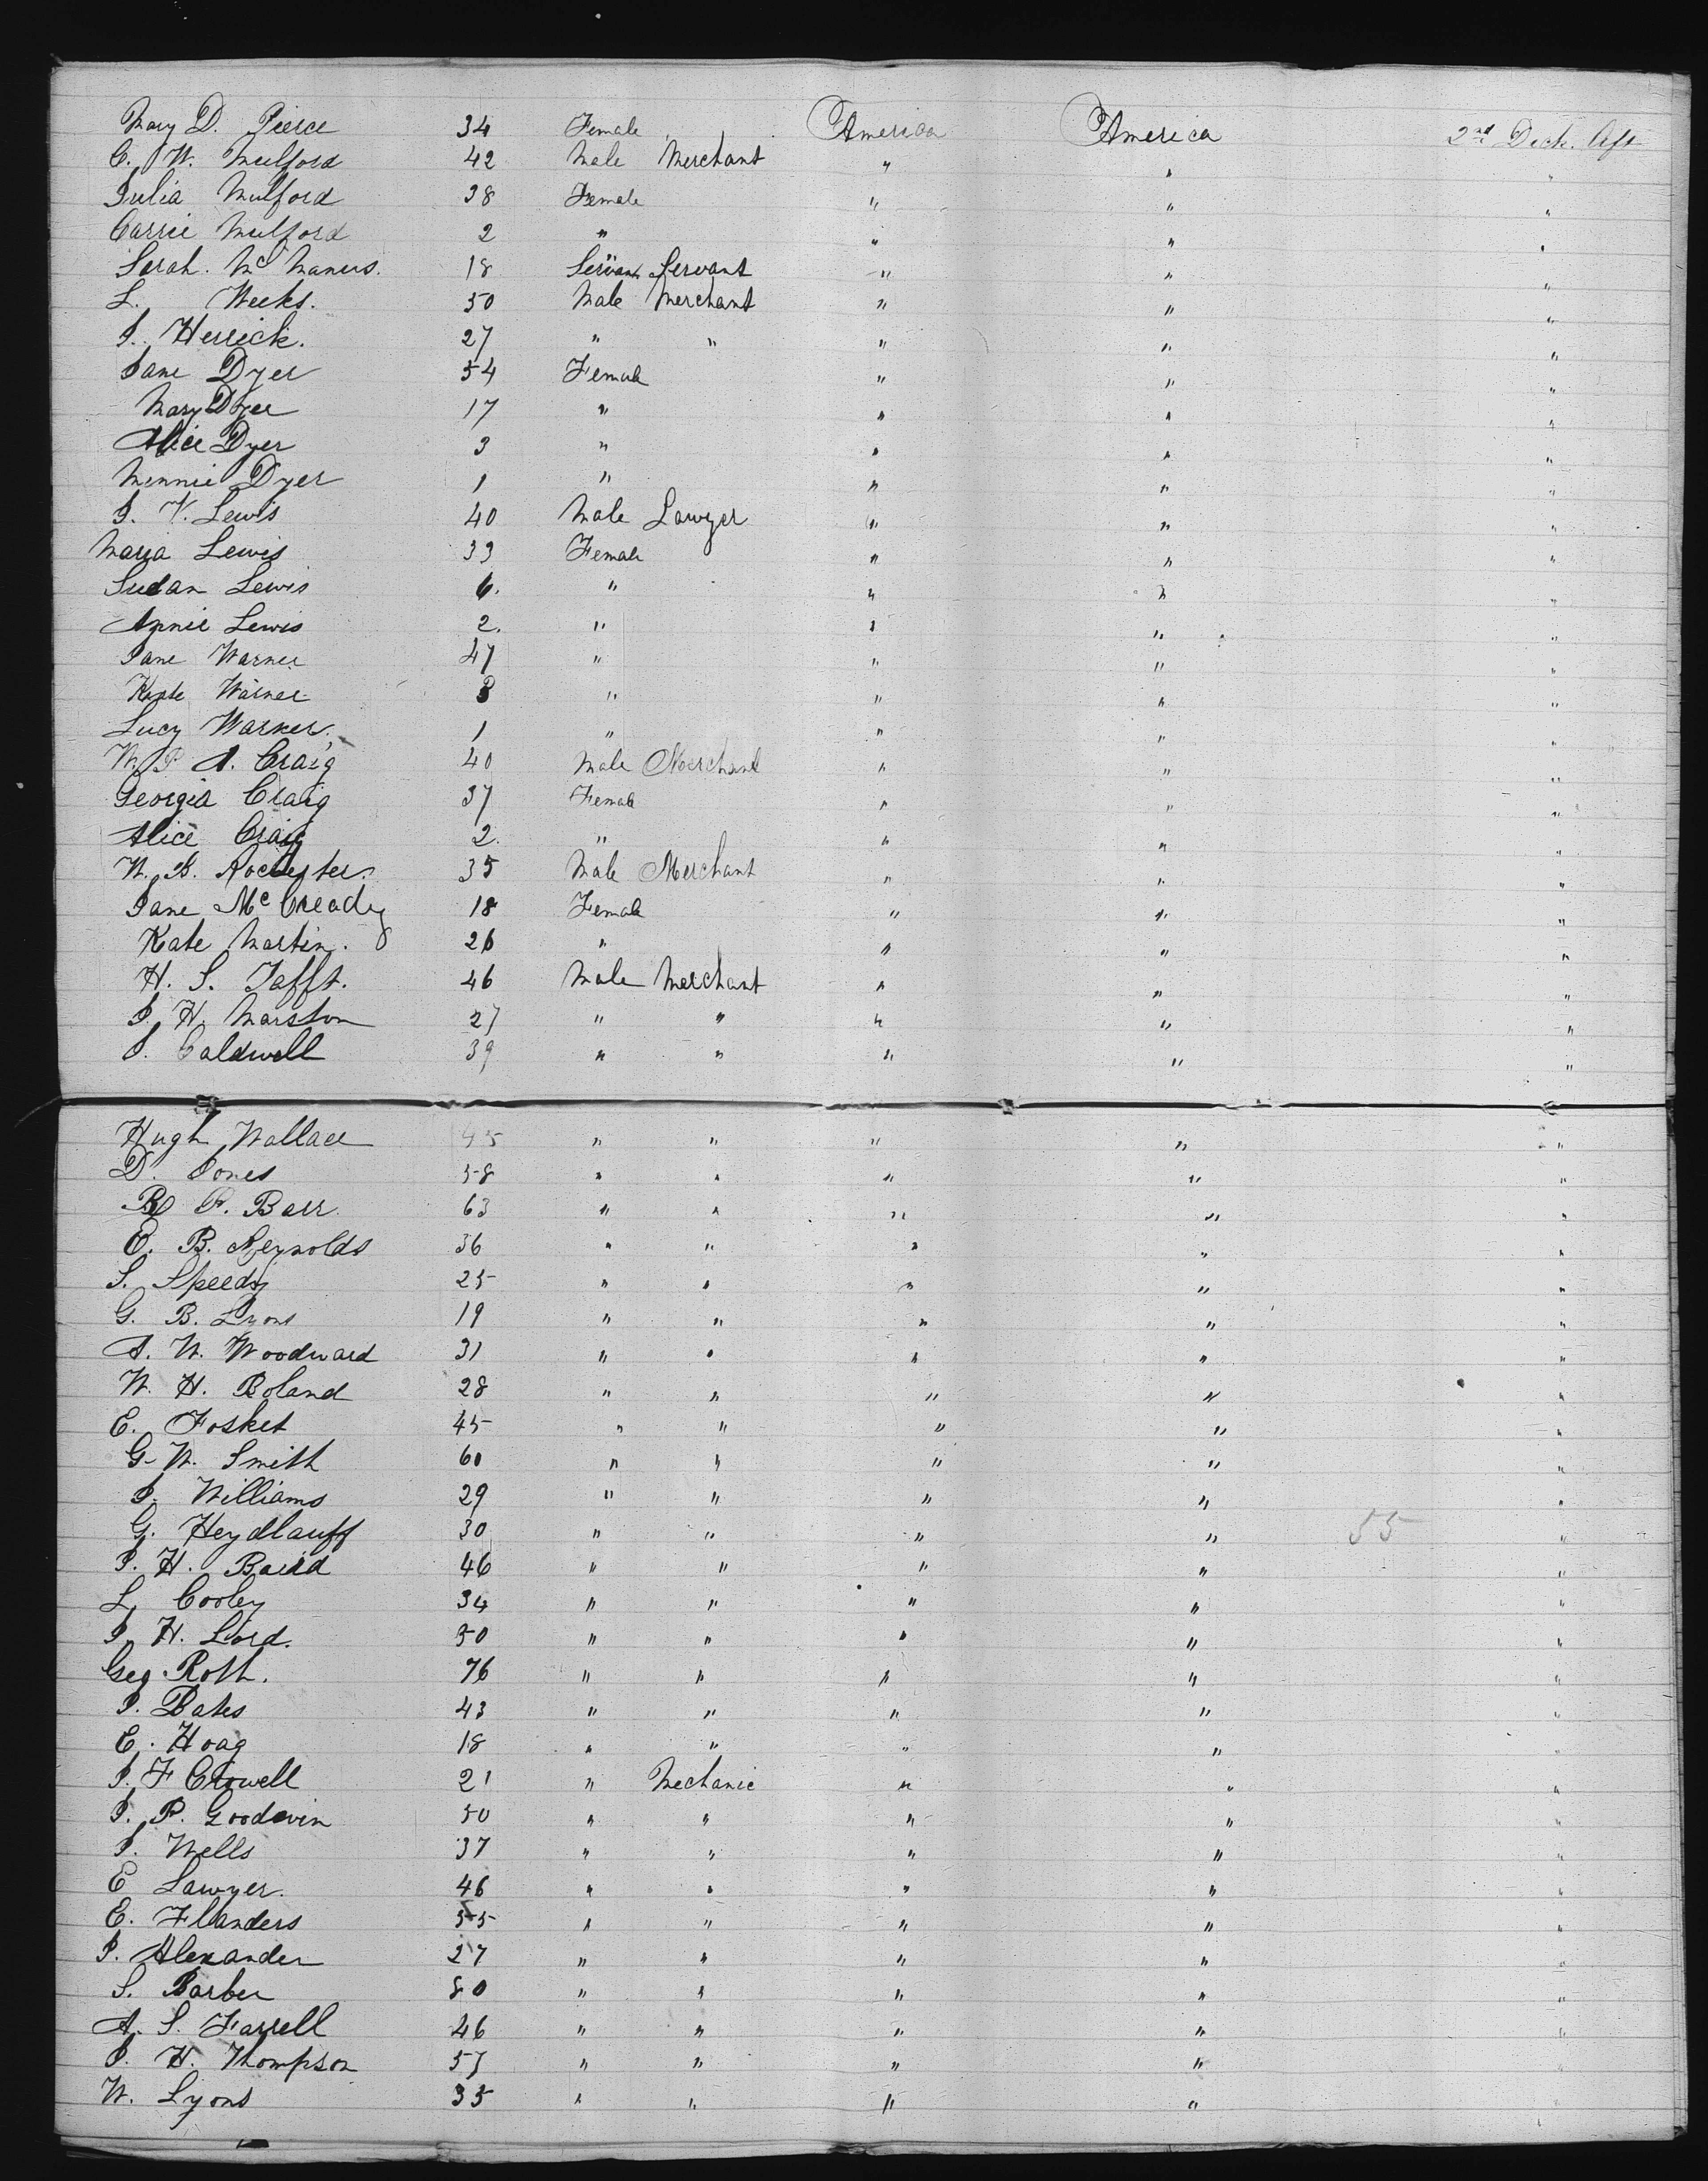 Mary D. Pierce 34 Female America America 2nd Deck. Aft
C. W. Mulford 42 Male Merchant " " "
Julia Mulford 38 Female " " "
Carrie Mulford 2 " " " "
Sarah. McManus. 18 Servant Servant " " "
L. Weeks. 50 Male Merchant " " "
J. Herrick. 27 " " " " "
Jane Dyer 54 Female " " "
Mary Dyer 17 " " " "
Alice Dyer 3 " " " "
Minnie Dyer 1 " " " "
J. V. Lewis 40 Male Lawyer " " "
Maria Lewis 33 Female " " "
Susan Lewis 6. " " " "
Annie Lewis 2. " " " "
Jane Warner 47 " " " "
Kate Warner 3 " " " "
Lucy Warner. 1 " " " "
W. P A. Craig 40 Male Merchant " " "
Georgia Craig 37 Female " " "
Alice Craig 2. " " " "
W. B. Rochester. 35 Male Merchant " " "
Jane McCready 18 Female " " "
Kate Martin. 26 " " " "
H. S. Tafft. 46 Male Merchant " " "
J. H. Marston 27 " " " " "
J. Caldwell 39 " " " " "
Hugh Wallace 45 " " " " "
D. Jones 58 " " " " "
B. P. Barr. 63 " " " " "
E. B. Reynolds 36 " " " " "
S. Speedy 25 " " " " "
G. B. Lyons 19 " " " " "
A. W. Woodward 31 " " " " "
W. H. Boland 28 " " " " "
E. Fosket 45 " " " " "
G. W. Smith 60 " " " " "
J. Williams 29 " " " " "
G. Heydlauff 30 " " " " 55 "
J. H. Baird 46 " " " " "
L. Cooley 34 " " " " "
J. H. Lord. 50 " " " " "
Geo. Roth. 76 " " " " "
J. Bates 43 " " " " "
E. Hoag 18 " " " " "
J. F Crowell 21 " Mechanic " " "
J. P. Goodwin 50 " " " " "
J. Wells 37 " " " " "
E Lawyer. 46 " " " " "
E. Flanders 55 " " " " "
J. Alexander 27 " " " " "
S. Barber 80 " " " " "
A. S. Farrell 46 " " " " "
J. H. Thompson 57 " " " " "
W. Lyons 35 " " " "